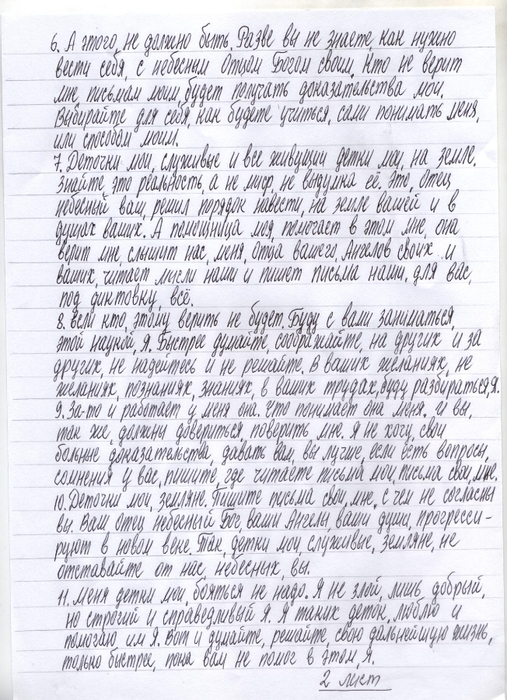 6. А этого, не должно быть. Разве вы не знаете, как нужно
вести себя, с небесным Отцом Богом своим. Кто не верит
мне, письмам моим, будет получать доказательства мои.
Выбирайте для себя, как будете учиться, сами понимать меня,
или способом моим.
7. Деточки мои, служивые и все живущии детки мои, на земле.
Знайте, это реальность, а не миф, не выдумка её. Это, Отец
небесный ваш, решил порядок навести, на земле вашей и в
душах ваших. А помощница моя, помогает в этом мне, она
верит мне, слышит нас, меня, Отца вашего, Ангелов своих и
ваших, читает мысли наши и пишет письма наши, для вас,
под диктовку, всё.
8. Если кто, этому верить не будет. Буду с вами заниматься,
этой наукой, Я. Быстрее думайте, соображайте, на других и за
других, не надейтесь и не решайте. В ваших желаниях, не
желаниях, познаниях, знаниях, в ваших трудах, буду разбираться, Я.
9. За-то и работает у меня она. Что понимает она меня. И вы,
так же, должны довериться, поверить мне. Я не хочу, свои
больные доказательства, давать вам, вы лучше, если есть вопросы,
сомнения у вас, пишите, где читаете письма мои, письма свои, мне.
10. Деточки мои, земляне. Пишите письма свои, мне, с чем не согласны
вы. Вам отец небесный Бог, ваши Ангелы, ваши души, прогресси-
руют в новом веке. Так, детки мои, служивые, земляне, не
отставайте от нас, небесных, вы.
11. Меня детки мои, бояться не надо. Я не злой, лишь добрый,
но строгий и справедливый Я. Я таких деток, люблю и
помогаю им Я. Вот и думайте, решайте, свою дальнейшую жизнь,
только быстрее, пока вам не помог в этом, Я.
2 лист